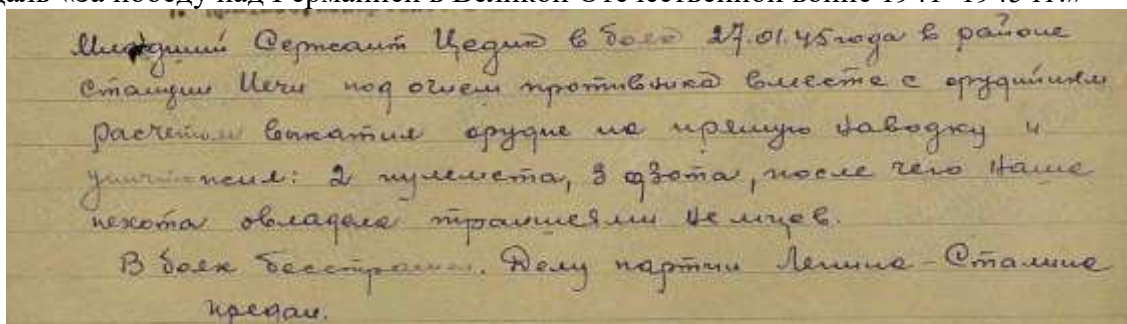 даль «За победу над Германией в Великой Отечественной войне 1941–1945 гг.»
Младший Сержант Цедик в боях 27.01.45 года в районе
Станции Иечи под огнем противника вместе с орудийным
расчетом выкатил орудие на прямую наводку и
уничтожил: 2 пулемета, 3 дзота, после чего Наша
пехота овладела траншеями Немцев.
В боях бесстрашен. Делу партии Ленина - Сталина
предан.